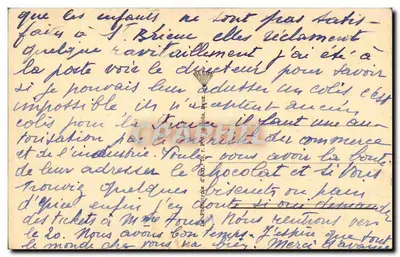 que les enfants ne sont pas satis-
faits à St Brieuc elles réclament
quelque ravitaillement j'ai été à
la poste voir le directeur pour savoir
si je pouvais leur adresser un colis c'est
impossible ils n'acceptent aucun
colis pour la il faut une au-
torisation par la du commerce
et de l'industrie. Voulez-vous avoir la bonté
de leur adresser le chocolat et si vous
trouviez quelques biscuits ou pain
d'épice enfin j'en doute si on demande
des tickets à Mme Nous rentrons vers
le 20. Nous avons bon temps. J'espère que tout
le monde chez vous va bien. Merci d'avance